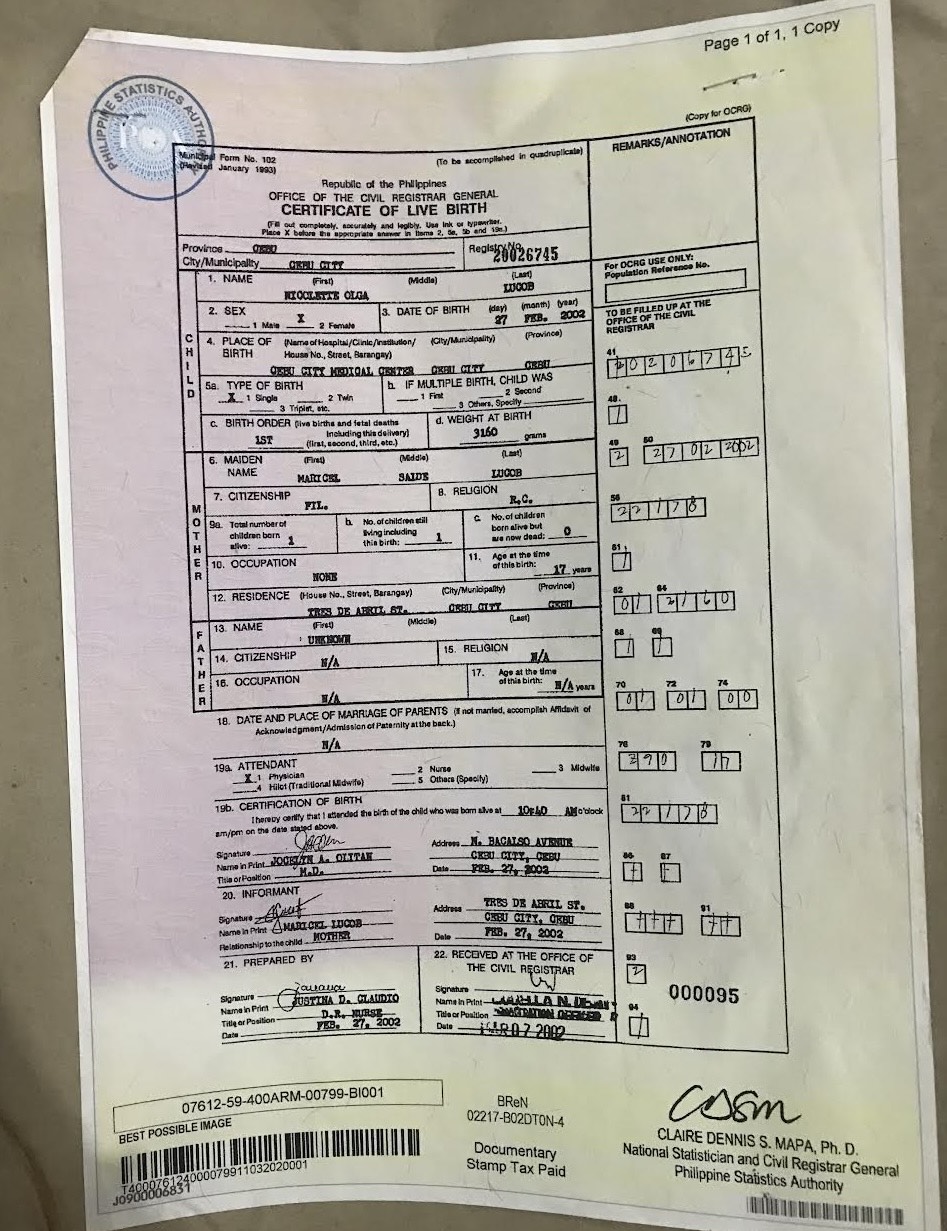 Page 1 of 1, 1 Copy
PHILIPPINE STATISTICS AUTHORITY
(Copy for OCRG)
Municipal Form No. 102
(Revised January 1993)
(To be accomplished in quadruplicate)
REMARKS/ANNOTATION
Republic of the Philippines
OFFICE OF THE CIVIL REGISTRAR GENERAL
CERTIFICATE OF LIVE BIRTH
(Fill out completely, accurately and legibly. Use ink or typewriter.
Place X before the appropriate answer in Items 2, 5a, 5b and 19a.)
Province CEBU
City/Municipality CEBU CITY
Registry No. 20026745
For OCRG USE ONLY:
Population Reference No.
CHILD
1. NAME (First) (Middle) (Last)
NICOLETTE OLGA LUCOB
2. SEX
1 Male X 2 Female
3. DATE OF BIRTH (day) (month) (year)
27 FEB. 2002
TO BE FILLED UP AT THE
OFFICE OF THE CIVIL
REGISTRAR
4. PLACE OF BIRTH (Name of Hospital/Clinic/Institution/ House No., Street, Barangay) (City/Municipality) (Province)
CEBU CITY MEDICAL CENTER CEBU CITY CEBU
41
5a. TYPE OF BIRTH
X 1 Single 2 Twin
3 Triplet, etc.
b. IF MULTIPLE BIRTH, CHILD WAS
1 First 2 Second
3 Others, Specify
48
1
c. BIRTH ORDER (live births and fetal deaths
including this delivery)
1ST (first, second, third, etc.)
d. WEIGHT AT BIRTH
3160 grams
49 50
2 27 02 2002
MOTHER
6. MAIDEN NAME (First) (Middle) (Last)
MARICEL SAIDE LUCOB
7. CITIZENSHIP
FIL.
8. RELIGION
R.C.
56
22178
9a. Total number of
children born
alive: 1
b. No. of children still
living including
this birth: 1
c. No. of children
born alive but
are now dead: 0
61
1
10. OCCUPATION
NONE
11. Age at the time
of this birth: 17 years
12. RESIDENCE (House No., Street, Barangay) (City/Municipality) (Province)
TRES DE ABRIL ST. CEBU CITY CEBU
62 64
01
FATHER
13. NAME (First) (Middle) (Last)
UNKNOWN
68 69
1 1
14. CITIZENSHIP
N/A
15. RELIGION
N/A
16. OCCUPATION
N/A
17. Age at the time
of this birth: N/A years
70 72 74
01 01 00
18. DATE AND PLACE OF MARRIAGE OF PARENTS (If not married, accomplish Affidavit of
Acknowledgment/Admission of Paternity at the back.)
N/A
76 79
390 17
19a. ATTENDANT
X 1 Physician 2 Nurse 3 Midwife
4 Hilot (Traditional Midwife) 5 Others (Specify)
19b. CERTIFICATION OF BIRTH
I hereby certify that I attended the birth of the child who was born alive at 10:40 AM o'clock
am/pm on the date stated above.
81
22178
Signature
Name in Print JOCELYN A. OLITAN
Title or Position M.D.
Address N. BACALSO AVENUE
CEBU CITY, CEBU
Date FEB. 27, 2002
86 87
20. INFORMANT
Signature
Name in Print MARICEL LUCOB
Relationship to the child MOTHER
Address TRES DE ABRIL ST.
CEBU CITY, CEBU
Date FEB. 27, 2002
88 91
21. PREPARED BY
Signature
Name in Print JUSTINA D. CLAUDIO
Title or Position D.R. NURSE
Date FEB. 27, 2002
22. RECEIVED AT THE OFFICE OF
THE CIVIL REGISTRAR
Signature
Name in Print
Title or Position
Date MAR 07 2002
93
2
000095
94
1
07612-59-400ARM-00799-BI001
BEST POSSIBLE IMAGE
T400076124000079911032020001
J0900006831
BReN
02217-B02DT0N-4
Documentary
Stamp Tax Paid
CLAIRE DENNIS S. MAPA, Ph. D.
National Statistician and Civil Registrar General
Philippine Statistics Authority